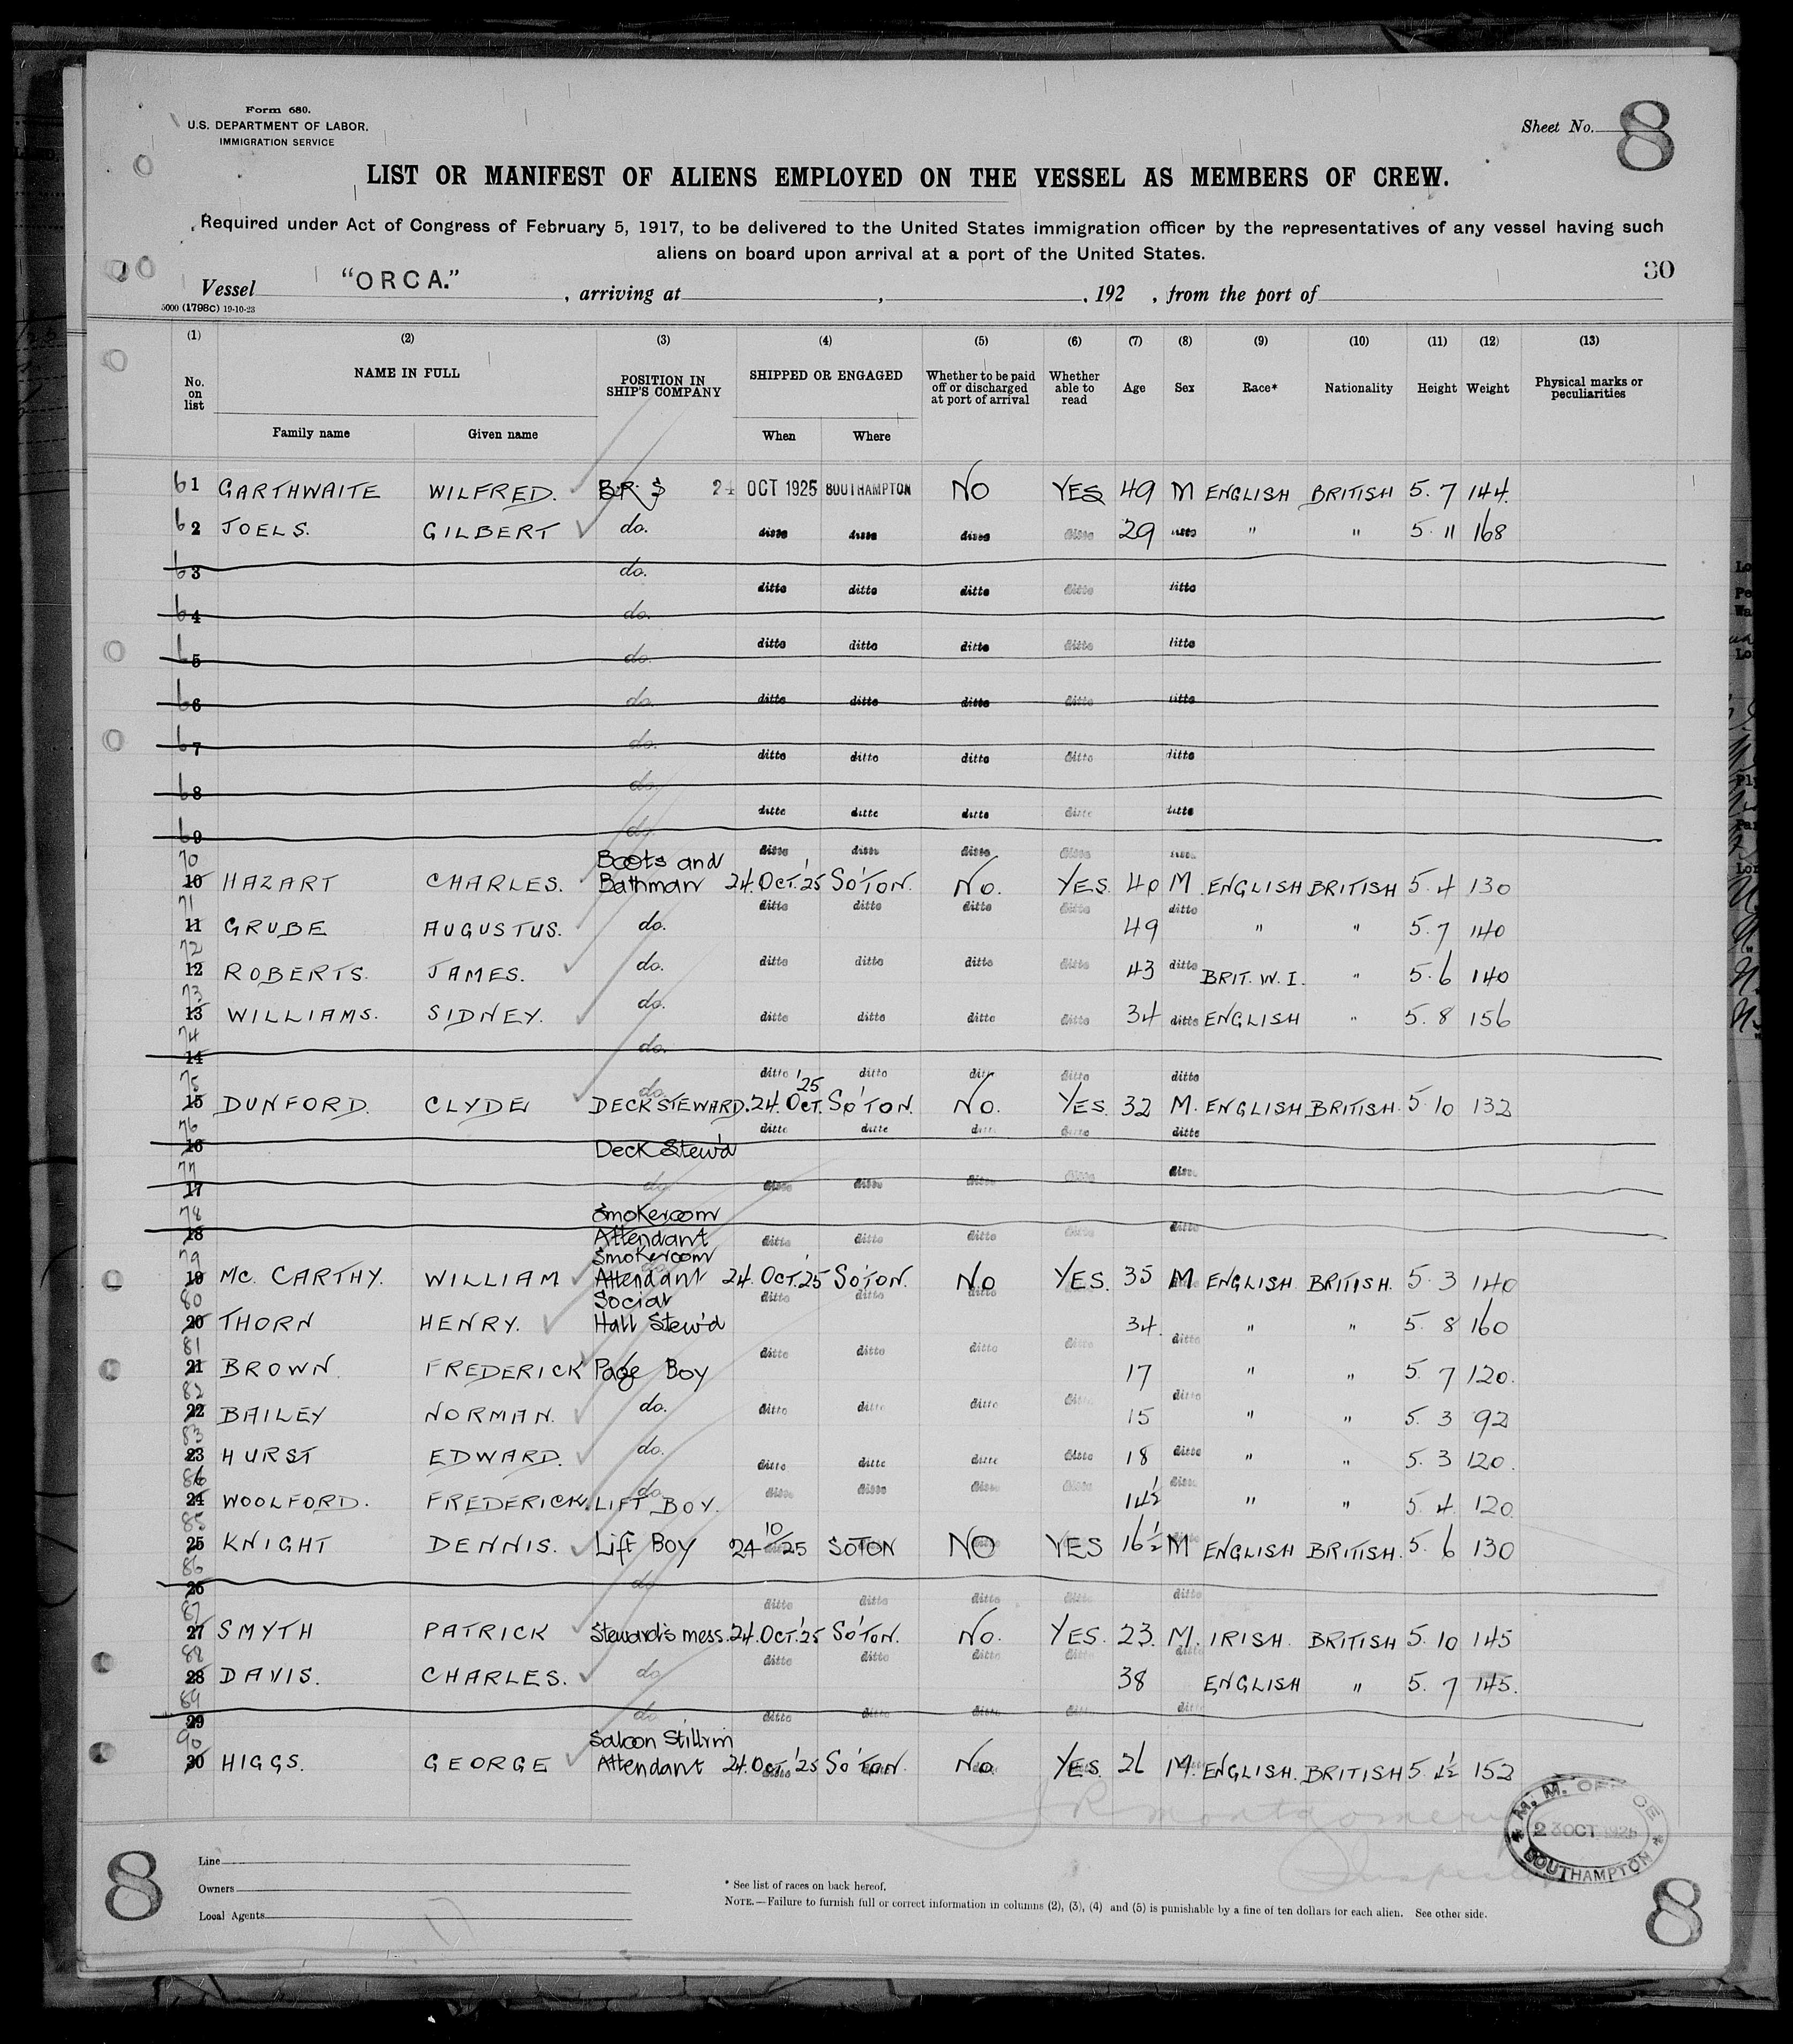 Form 680.
U.S. DEPARTMENT OF LABOR,
IMMIGRATION SERVICE
Sheet No. 8
LIST OR MANIFEST OF ALIENS EMPLOYED ON THE VESSEL AS MEMBERS OF CREW.
Required under Act of Congress of February 5, 1917, to be delivered to the United States immigration officer by the representatives of any vessel having such
aliens on board upon arrival at a port of the United States.
30
Vessel "ORCA." , arriving at , , 192 , from the port of
5000 (1798C) 19-10-23
(1) (2) (3) (4) (5) (6) (7) (8) (9) (10) (11) (12) (13)
No. on list NAME IN FULL POSITION IN SHIP'S COMPANY SHIPPED OR ENGAGED Whether to be paid off or discharged at port of arrival Whether able to read Age Sex Race* Nationality Height Weight Physical marks or peculiarities
Family name Given name When Where
61 GARTHWAITE WILFRED. B.R. S 24 OCT 1925 SOUTHAMPTON NO YES 49 M ENGLISH BRITISH 5. 7 144.
62 JOELS. GILBERT do. ditto ditto ditto ditto 29 ditto " " 5. 11 168
63 do.
ditto ditto ditto ditto ditto
64 do.
65 do.
ditto ditto ditto ditto ditto
66 do. ditto ditto ditto ditto ditto
67 do.
ditto ditto ditto ditto ditto
68 do.
ditto ditto ditto ditto ditto
69 do.
ditto ditto ditto ditto ditto
70 Boots and
10 HAZART CHARLES. Bathman 24. OCT. '25 SO'TON. NO. YES. 40 M. ENGLISH BRITISH 5. 4 130
71 ditto ditto ditto ditto ditto
11 GRUBE AUGUSTUS. do. 49 " " 5. 7 140
72
12 ROBERTS. JAMES. do. ditto ditto ditto ditto 43 ditto BRIT. W. I. " 5. 6 140
73
13 WILLIAMS. SIDNEY. do. ditto ditto ditto ditto 34 ditto ENGLISH " 5. 8 156
74
14 do.
75 ditto ditto ditto ditto ditto
15 DUNFORD. CLYDE do. DECK STEWARD. 24. OCT. '25 SO'TON. NO. YES. 32 M. ENGLISH BRITISH. 5. 10 132
76 ditto ditto ditto ditto ditto
16 Deck Stew'd
77
17 do. ditto ditto ditto ditto ditto
78 Smokeroom
18 Attendant ditto ditto ditto ditto ditto
79 Smokeroom
19 Mc. CARTHY. WILLIAM Attendant 24. OCT. '25 SO'TON. NO YES. 35 M ENGLISH BRITISH. 5. 3 140
80 Social ditto ditto ditto
20 THORN HENRY. Hall Stew'd 34. ditto " " 5. 8 160
81
21 BROWN FREDERICK Page Boy ditto ditto ditto ditto 17 " " 5. 7 120.
82
22 BAILEY NORMAN. do. ditto ditto ditto ditto 15 ditto " " 5. 3 92
83
23 HURST EDWARD. do. ditto ditto ditto ditto 18 ditto " " 5. 3 120.
84 do. ditto ditto ditto ditto ditto
24 WOOLFORD. FREDERICK. LIFT BOY. 14½ " " 5. 4. 120.
85
25 KNIGHT DENNIS. Lift Boy 24 10/25 SOTON NO YES 16½ M ENGLISH BRITISH. 5. 6 130
86
26 do
87 ditto ditto ditto ditto ditto
27 SMYTH PATRICK Steward's mess. 24. OCT. '25 SO'TON. NO. YES. 23. M. IRISH. BRITISH 5. 10 145
88 ditto ditto ditto ditto ditto
28 DAVIS. CHARLES. do 38 ENGLISH " 5. 7 145.
89
29 do ditto ditto ditto ditto ditto
90 Saloon Stillrm
30 HIGGS. GEORGE Attendant 24. OCT. '25 SO'TON. NO YES. 26 M. ENGLISH. BRITISH 5. 1½ 152
J R Montgomery
Inspector
M. M. OFFICE
23 OCT 1925
SOUTHAMPTON
8
Line
Owners
Local Agents
* See list of races on back hereof.
NOTE.—Failure to furnish full or correct information in columns (2), (3), (4) and (5) is punishable by a fine of ten dollars for each alien. See other side.
8